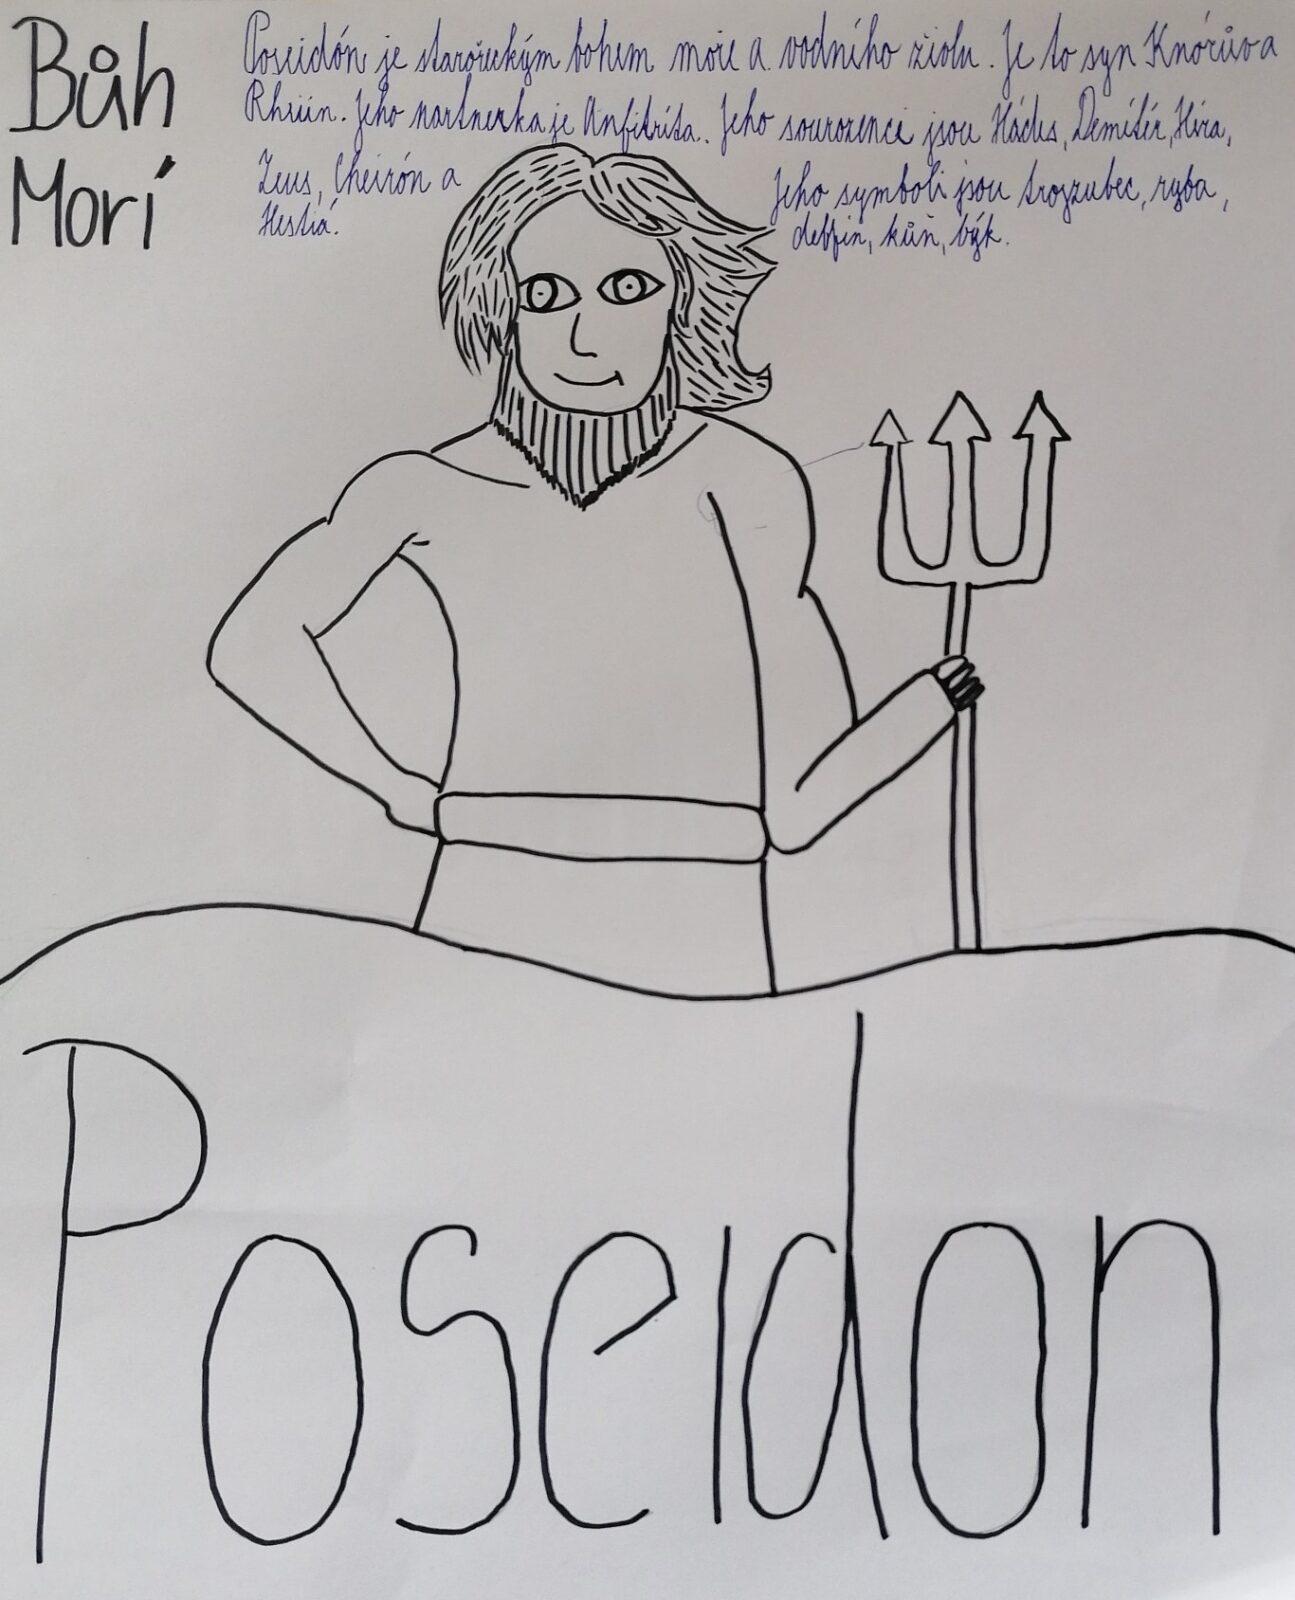 Bůh
Morí
Poseidón je starořeckým bohem moře a vodního živlu. Je to syn Knórův a
Rheiin. Jeho partnerka je Anfitrita. Jeho sourozenci jsou Hádes, Demétér, Héra,
Zeus, Cheirón a
Hestiá.
Jeho symboli jsou trojzubec, ryba,
delfín, kůň, býk.
Poseidon